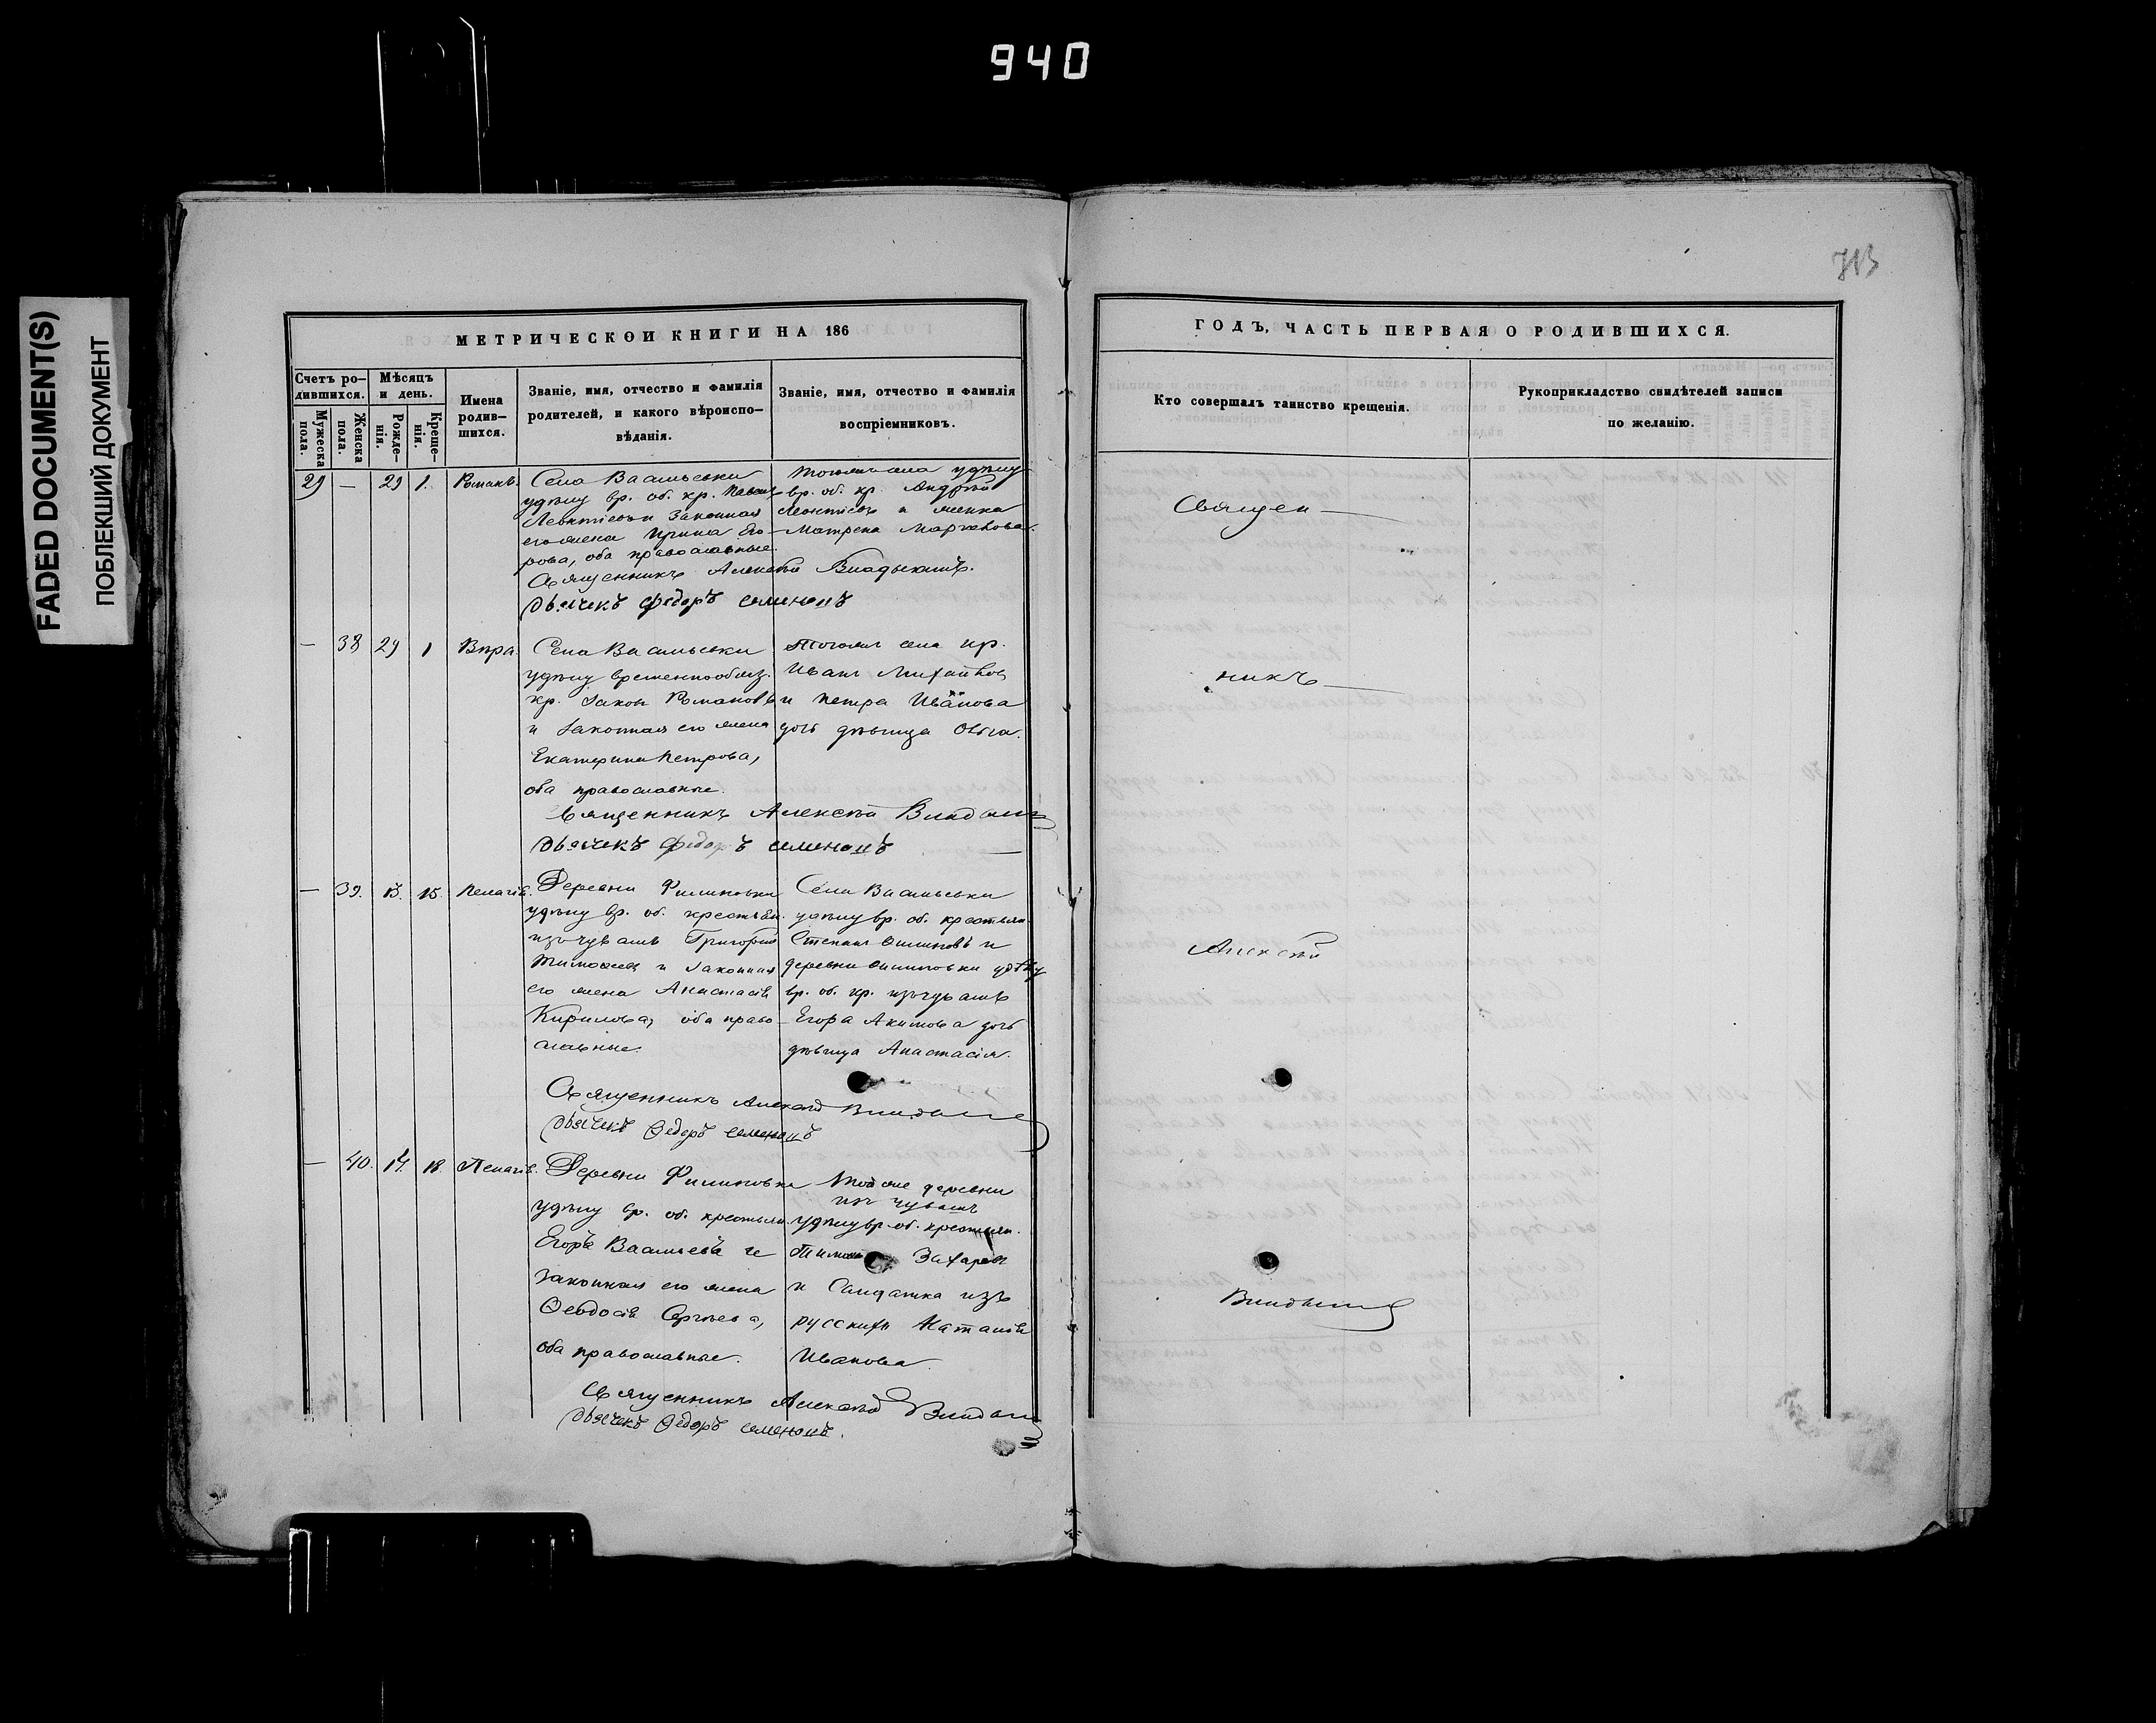 940
FADED DOCUMENT(S)
ПОБЛЕКШИЙ ДОКУМЕНТ
МЕТРИЧЕСКОИ КНИГИ НА 186
Счетъ ро-
дившихся.
Мужеска
пола.
Женска
пола.
Мѣсяцъ
и день.
Рожде-
нія.
Креще-
нія.
Имена
родив-
шихся.
Званіе, имя, отчество и фамилія
родителей, и какого вѣроиспо-
вѣданія.
Званіе, имя, отчество и фамилія
воспріемниковъ.
29 — 29 1. Романъ.
Села Васильевки
удѣлу вр. об. кр. Павелъ
Леонтіевъ и законная
его жена Ирина Его-
рова, оба православные.
тогожъ села удѣлу
вр. об. кр. Андрей
Леонтіевъ и женка
Матрена Маркелова.
Священникъ Алексѣй
Дьячекъ Федоръ Семеновъ
— 38 29 1 Вѣра.
Села Васильевки
удѣлу временнообяз.
кр. Іаковъ Романовъ
и законная его жена
Екатерина Петрова,
оба православные.
Тогожъ села кр.
Иванъ Михайловъ
и Петра Иванова
дочь дѣвица Ольга.
Священникъ Алексѣй
Дьячекъ Федоръ Семеновъ
— 39. 13. 15. Пелагія.
Деревни Филиповки
удѣлу вр. об. крестьян.
изъ чувашъ Григорій
Тимофеев и законная
его жена Анастасія
Кирилова, оба право-
славные.
Села Васильевки
удѣлу вр. об. крестьян.
Степанъ Филиповъ и
деревни Филиповки удѣлу
вр. об. кр. изъ чувашъ
Егора Акимова дочь
дѣвица Анастасія.
Священникъ Алексѣй
Дьячекъ Федоръ Семеновъ
— 40. 14. 18 Пелагія.
Деревни Филиповки
удѣлу вр. об. крестьян.
Егоръ Васильевъ и
законная его жена
Феодосія Сергѣева,
оба православные.
Тойже деревни
изъ чувашъ
удѣлу вр. об. крестьян.
Захаровъ
и Салдатка изъ
русскихъ Наталія
Иванова.
Священникъ Алексѣй
Дьячекъ Федоръ Семеновъ.
ГОДЪ, ЧАСТЬ ПЕРВАЯ О РОДИВШИХСЯ.
Кто совершалъ таинство крещенія.
Рукоприкладство свидѣтелей записи
по желанію.
Священ—
никъ—
Алексѣй